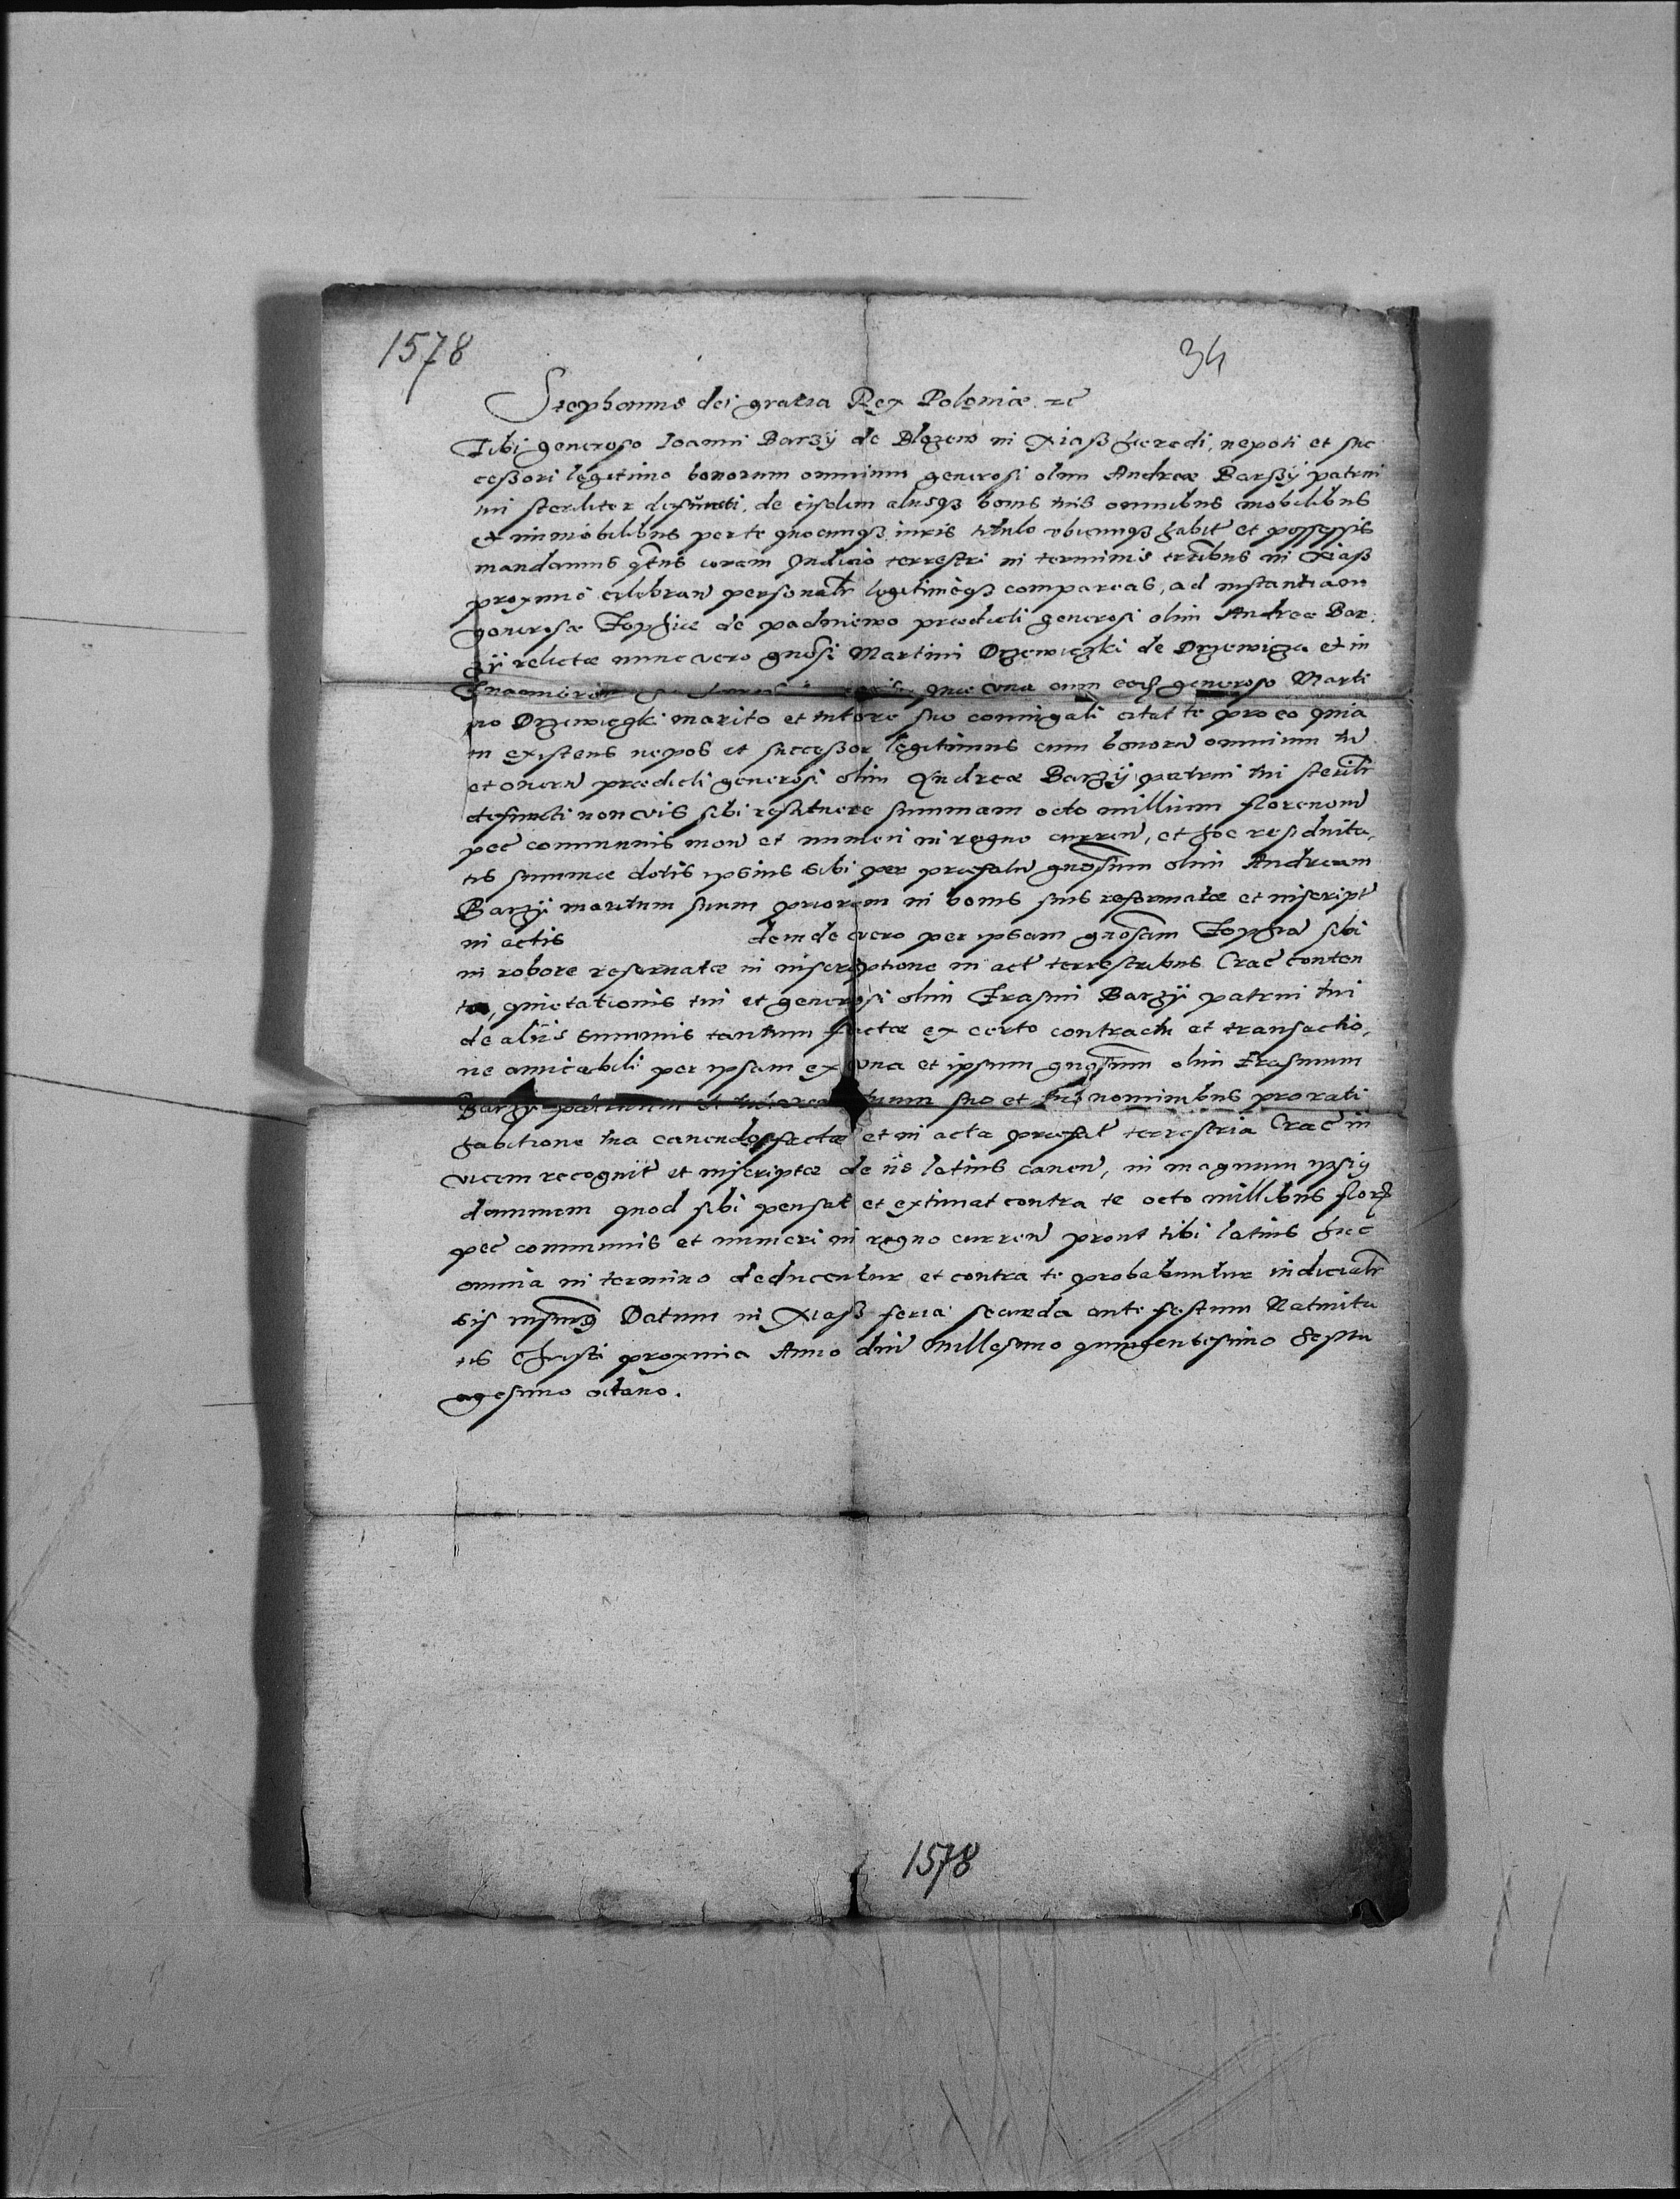 1578
34
Stephanus dei gratia Rex Poloniæ etc̃
Tibi generoso Ioanni Barzÿ de Blozew in Xiąß hæredi, nepoti et suc
ceßori legitimo bonorum omnium generosi olim Andreæ Barßÿ patrui
tui steriliter defuncti, de eisdem aliisqз bonis tuis omnibus mobilibus
et immobilibus per te quocunqз iuris titulo vbicunqз habit̃ et possessis
mandamus q̃tus coram Iudicio terrestri in terminis tr̃ribus in Xiąß
proximè celebran̄ personalr̃ legitimèqз compareas, ad instantiam
generosæ Zophiæ de padniewo prædicti generosi olim Andreæ Bar
zÿ relictæ nunc vero gnosi Martini Drzewięzki de Drzewicza et in
quæ vna cum eod̃ generoso Marti
no Drzewięzki marito et tutore suo coniugali citat te pro eo quia
tu existens nepos et succeßor legitimus cum bonorū omnium tū
et onerū prædicti generosi olim Andreæ Barzÿ patrui tui sterilr̃
defuncti non vis sibi restituere summam octo millium florenorū
pec̃ communis mon̄ et numeri in regno curren̄, et hoc residuita
tis summæ dotis ipsius sibi per præfatū gnosum olim Andream
Barzÿ maritum suum priorem in bonis suis reformatæ et inscript̃
in actis deinde vero per ipsam gnosam Zophiā sibi
in robore reseruatæ in inscriptione in act̃ terrestribus Crac̃ conten
ta, quietationis tui et generosi olim Erasmi Barzÿ patrui tui
de aliis summis tantum factæ ex certo contractu et transactio
ne amicabili per ipsam ex vna et ipsum gnosum olim Erasmum
Barzÿ patruum et tutorem tuum suo et tuo nominibus pro rati
habitione tua cauendo factæ et in acta præfat̃ terrestria Crac̃ in
vicem recognit̃ et inscriptæ de iis latius cauen̄, in magnum ipsiꝰ
damnum quod sibi pensat et extimat contra te octo millibus flor̃
pec̃ communis et numeri in regno curren̄ prout tibi latius hæc
omnia in termino deducentur et contra te probabuntur iudicialr̃
sis Datum in Xiąß feria secunda ante festum Natiuita
tis Christi proxima Anno dni Millesimo quingentesimo Septu
agesimo octauo.
1578